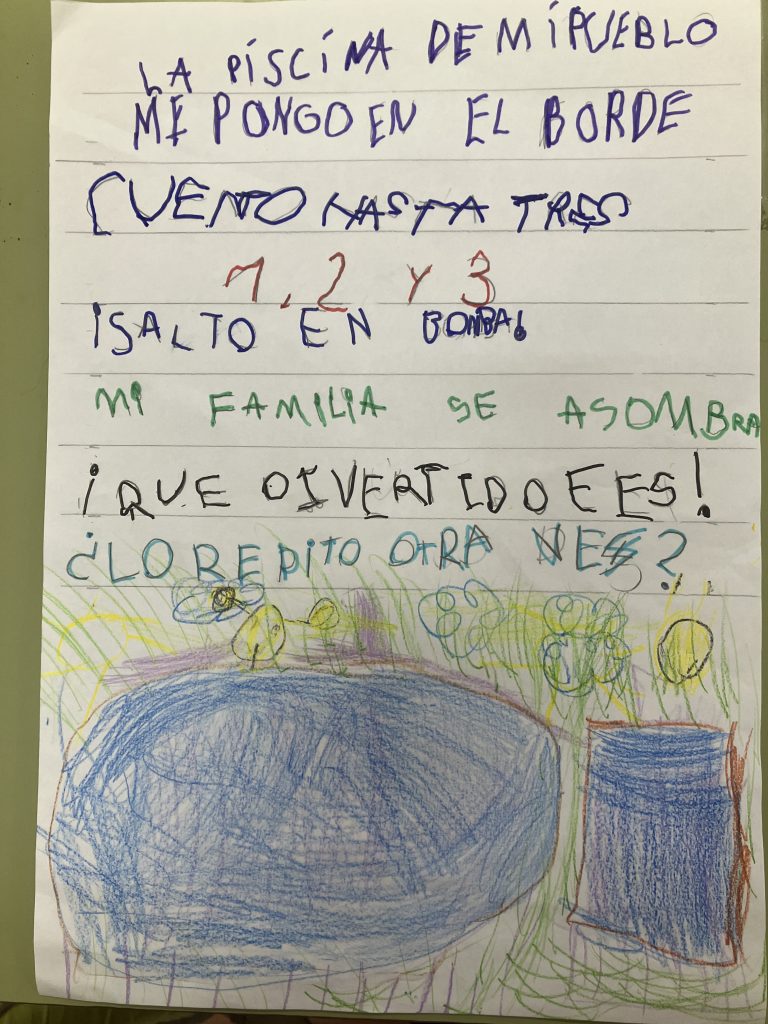 LA PISCINA DE MI PUEBLO
ME PONGO EN EL BORDE
CUENTO HASTA TRES
1, 2 Y 3
¡SALTO EN BOMBA!
MI FAMILIA SE ASOMBRA
¡QUE DIVERTIDO E ES!
¿LO REPITO OTRA VES?